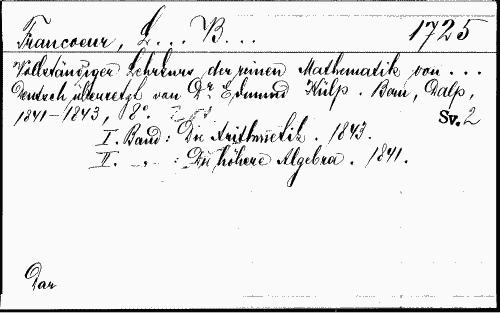 Francoeur, L... B... 1725
Vollständiger Lehrkurs der reinen Mathematik von ...
Deutsch übersetzt von Dr Edmund Külp. Bern, Dalp,
1841-1843, 8º. Sv. 2
I. Band: Die Arithmetik. 1843.
II. -„- : Die höhere Algebra. 1841.
Dar